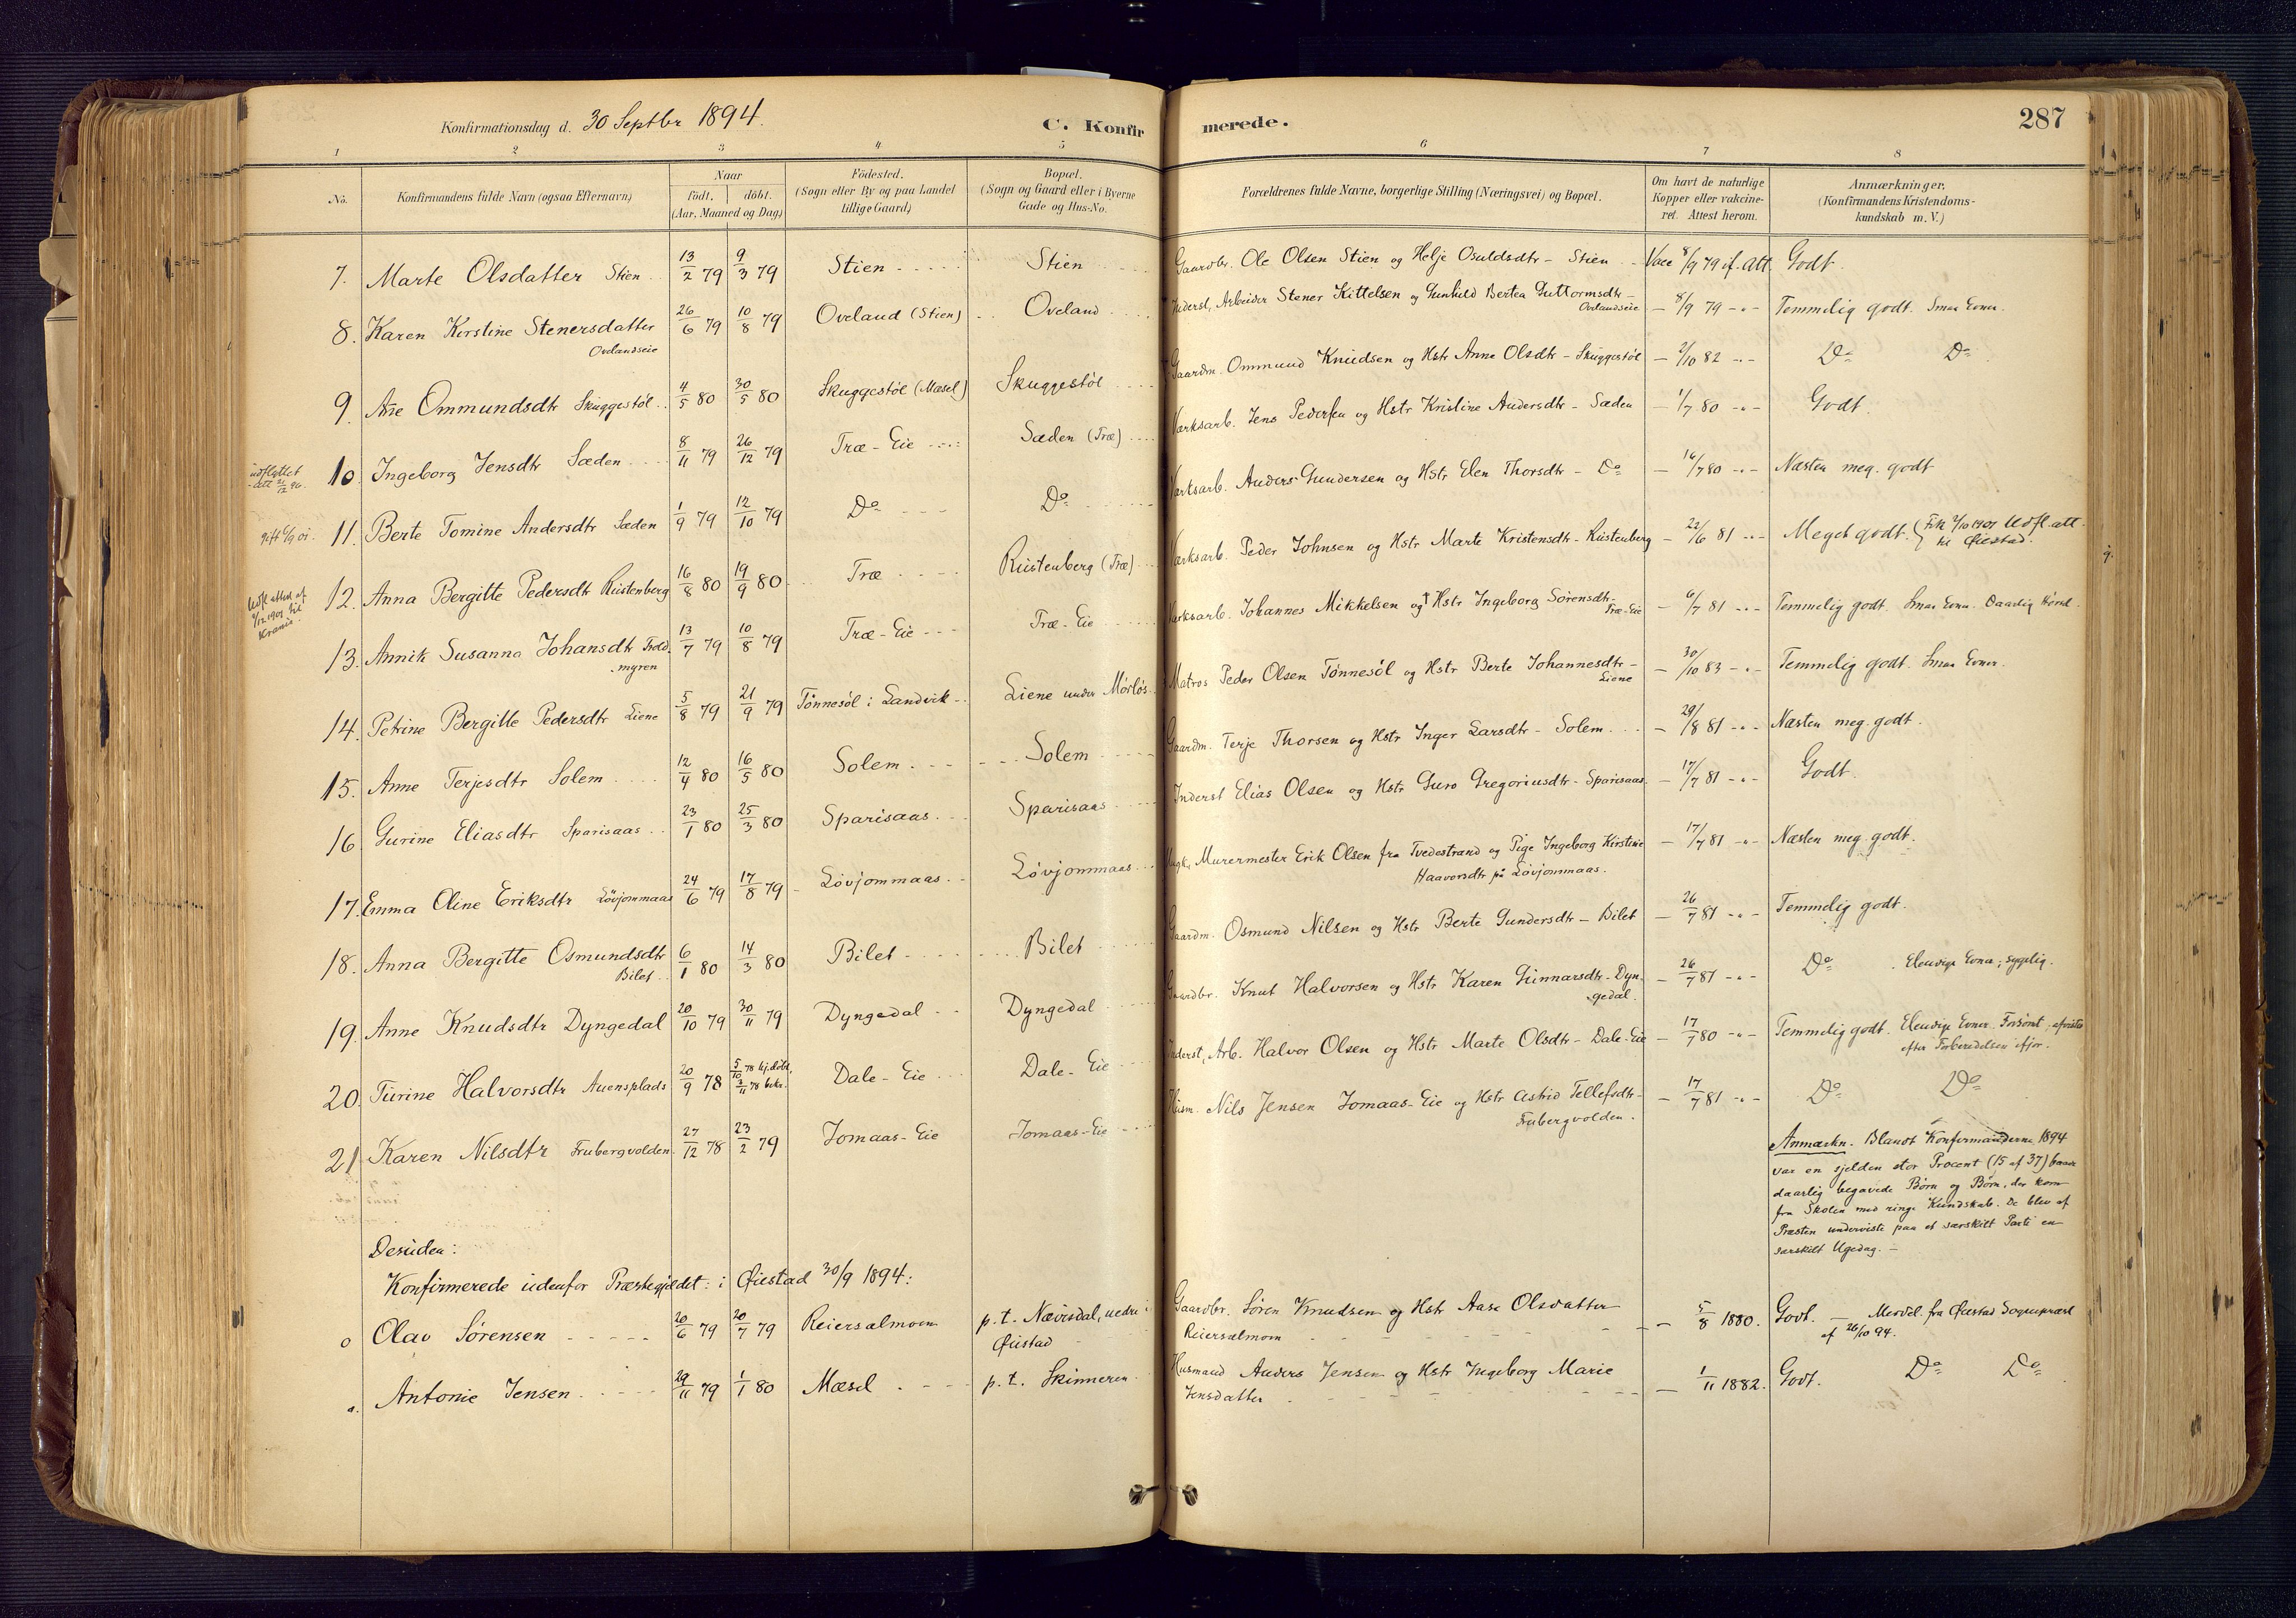 Konfirmationsdag d. 30 Septbr 1894.
C. Konfirmerede.
287
1 2 3 4 5 6 7 8
No.
Konfirmandens fulde Navn (ogsaa Efternavn)
Naar
födt. döbt.
(Aar, Maaned og Dag)
Födested.
(Sogn eller By og paa Landet
tillige Gaard)
Bopæl.
(Sogn og Gaard eller i Byerne
Gade og Hus-No.
Forældrenes fulde Navne, borgerlige Stilling (Næringsvei) og Bopæl.
Om havt de naturlige
Kopper eller vakcine-
ret. Attest herom.
Anmærkninger.
(Konfirmandens Kristendoms-
kundskab m. V.)
7. Marte Olsdatter Stien 13/2 79 9/3 79 Stien Stien Gaardbr. Ole Olsen Stien og Helje Osuldsdtr - Stien Vacc 8/9 79 if. Att. Godt.
8. Karen Kirstine Stenersdatter 26/6 79 10/8 79 Oveland (Stien) Oveland Inderst, Arbeider Stener Kittelsen og Gunhild Bertea Guttormsdtr - 8/9 79 -"- Temmelig godt. Smaa Evner.
Ovelandseie
Ovelandseie
9. Ane Ommundsdtr Skuggestøl 4/5 80 30/5 80 Skuggestøl (Mæsel) Skuggestøl Gaardm. Ommund Knudsen og Hstr Anne Olsdtr - Skuggestøl - 2/10 82 -"- Do Do
udflyttet
att 21/12 96.
10. Ingeborg Jensdtr Sæden 8/11 79 26/12 79 Træ-Eie Sæden (Træ) Værksarb. Jens Pedersen og Hstr Kristine Andersdtr - Sæden - 1/7 80 -"- Godt.
gift 6/9 01.
11. Berte Tomine Andersdtr Sæden 1/9 79 12/10 79 Do Do Værksarb. Anders Gundersen og Hstr Elen Thorsdtr - Do - 16/7 80 -"- Næsten meg. godt
Udfl. attest af
/12 1901 til
Krania
12. Anna Bergitte Pedersdtr Rustenberg 16/8 80 19/9 80 Træ Rustenberg (Træ) Værksarb. Peder Johnsen og Hstr Marte Kristensdtr - Rustenberg - 22/6 81 -"- Meget godt. (Fik 2/10 1901 Udfl. att.
til Øiestad.
13. Annik Susanna Johansdtr Trold- 13/7 79 10/8 79 Træ-Eie Træ-Eie Værksarb. Johannes Mikkelsen og † Hstr Ingeborg Sørensdtr - 6/7 81 -"- Temmelig godt. Smaa Evner. Daarlig Hørsel.
myren
Træ-Eie
14. Petrine Bergitte Pedersdtr Liene 5/8 79 21/9 79 Tønnesøl i Landvik Liene under Mørløs Matros Peder Olsen Tønnesøl og Hstr Berte Johannesdtr - 30/10 83 -"- Temmelig godt. Smaa Evner.
Liene
15. Anne Terjesdtr Solem 12/4 80 16/5 80 Solem Solem Gaardm. Terje Thorsen og Hstr Inger Larsdtr - Solem - 29/8 81 -"- Næsten meg. godt.
16. Gurine Eliasdtr Sparisaas 23/1 80 25/3 80 Sparisaas Sparisaas Inderst Elias Olsen og Hstr Guro Gregoriusdtr - Sparisaas - 17/7 81 -"- Godt.
17. Emma Oline Eriksdtr Løvjommaas 24/6 79 17/8 79 Løvjommaas Løvjommaas Ungk. Murermester Erik Olsen fra Tvedestrand og Pige Ingeborg Kirstine - 17/7 81 -"- Næsten meg. godt.
Haavorsdtr på Løvjommaas.
18. Anna Bergitte Osmundsdtr 6/1 80 14/3 80 Bilet Bilet Gaardm. Osmund Nilsen og Hstr Berte Gundersdtr - Bilet - 26/7 81 -"- Temmelig godt.
Bilet
19. Anne Knudsdtr Dyngedal 20/10 79 30/11 79 Dyngedal Dyngedal Gaardbr. Knut Halvorsen og Hstr Karen Gunnarsdtr - Dyn- 26/7 81 -"- Do Elendige Evner; sygelig.
gedal.
20. Turine Halvorsdtr Auensplads 20/9 78 5/10 78 hj.døbt, Dale-Eie Dale-Eie Inderst, Arb. Halvor Olsen og Hstr Marte Olsdtr - Dale-Eie - 17/7 80 -"- Temmelig godt. Elendige Evner. Forsømt, afviste
3/11 78 bekr. efter Forberedelsen ifjor.
21 Karen Nilsdtr Frubergvolden 27/12 78 23/2 79 Jomaas-Eie Jomaas-Eie Husm. Nils Jensen Jomaas-Eie og Hstr Astrid Tellefsdtr - 17/7 81 -"- Do Do
Frubergvolden.
Anmærkn. Blandt Konfirmanderne 1894
var en sjelden stor Procent (15 af 37)
daarlig begavede Børn og Børn, der kom
fra Skolen med ringe Kundskab. De blev af
Præsten underviste paa et særskilt Parti en
særskilt Ugedag. -
Desuden:
Konfirmerede udenfor Præstegjeldet: i Øiestad 30/9 1894:
o Olav Sørensen 20/6 79 20/7 79 Reiersølmoen p. t. Nævisdal, nedre i Gaardbr. Søren Knudsen og Hstr Aase Olsdatter - 5/8 1880. Godt. - Meddel. fra Øiestad Sognepræst
Øiestad Reiersølmoen af 26/10 94.
a. Antonie Jensen 29/11 79 1/1 80 Mæsel p. t. Skinneren Husmand Anders Jensen og Hstr Ingeborg Marie - 1/11 1882. Godt. Do Do
Jensdatter